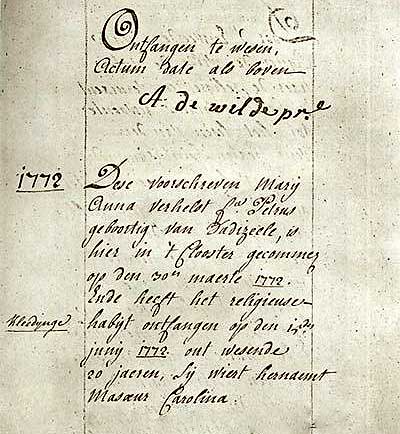 10
Ontfangen te wesen,
Actum date als boven
A. de wilde pre
1772
Dese voorschreven Marij
Anna verhelst fa Petrus
geboortig van Tadizeele, is
hier in 't Clooster gecommen
op den 30en maerte 1772.
Ende heeft het religieuse
Kleedynge
habijt ontfangen op den
junij 1772 out wesende
20 jaeren, Sij wiert hernaemt
Masoeur Carolina.